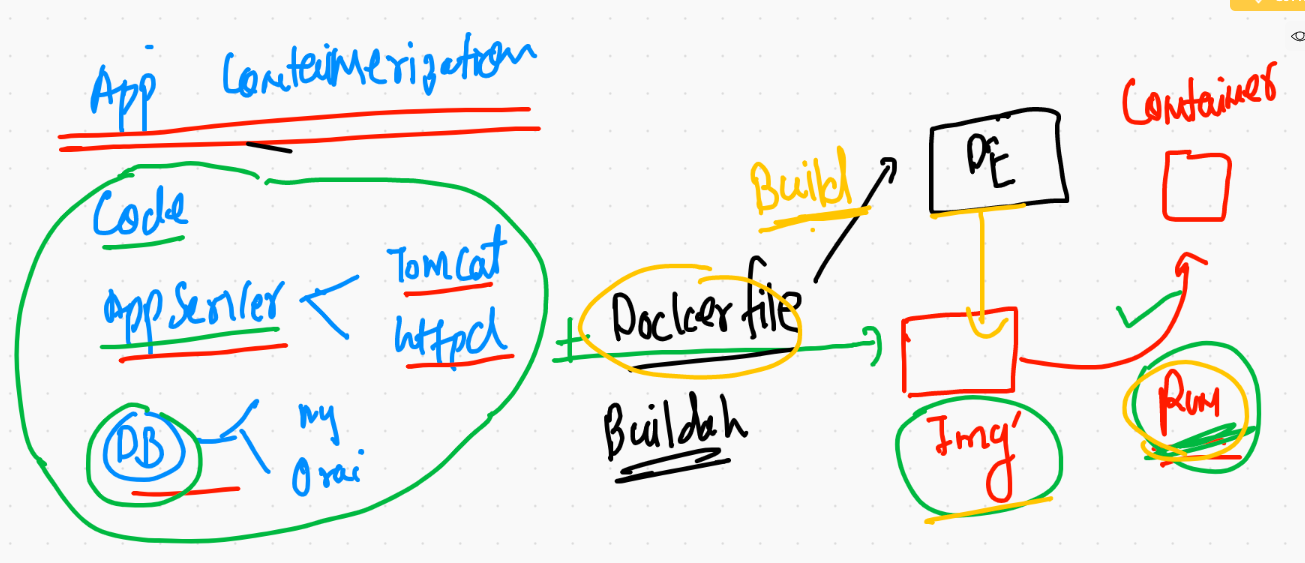 App Containerization
Code
App Server
Tomcat
httpd
DB
my
Build
Dockerfile
Buildah
DE
Img
Container
Run